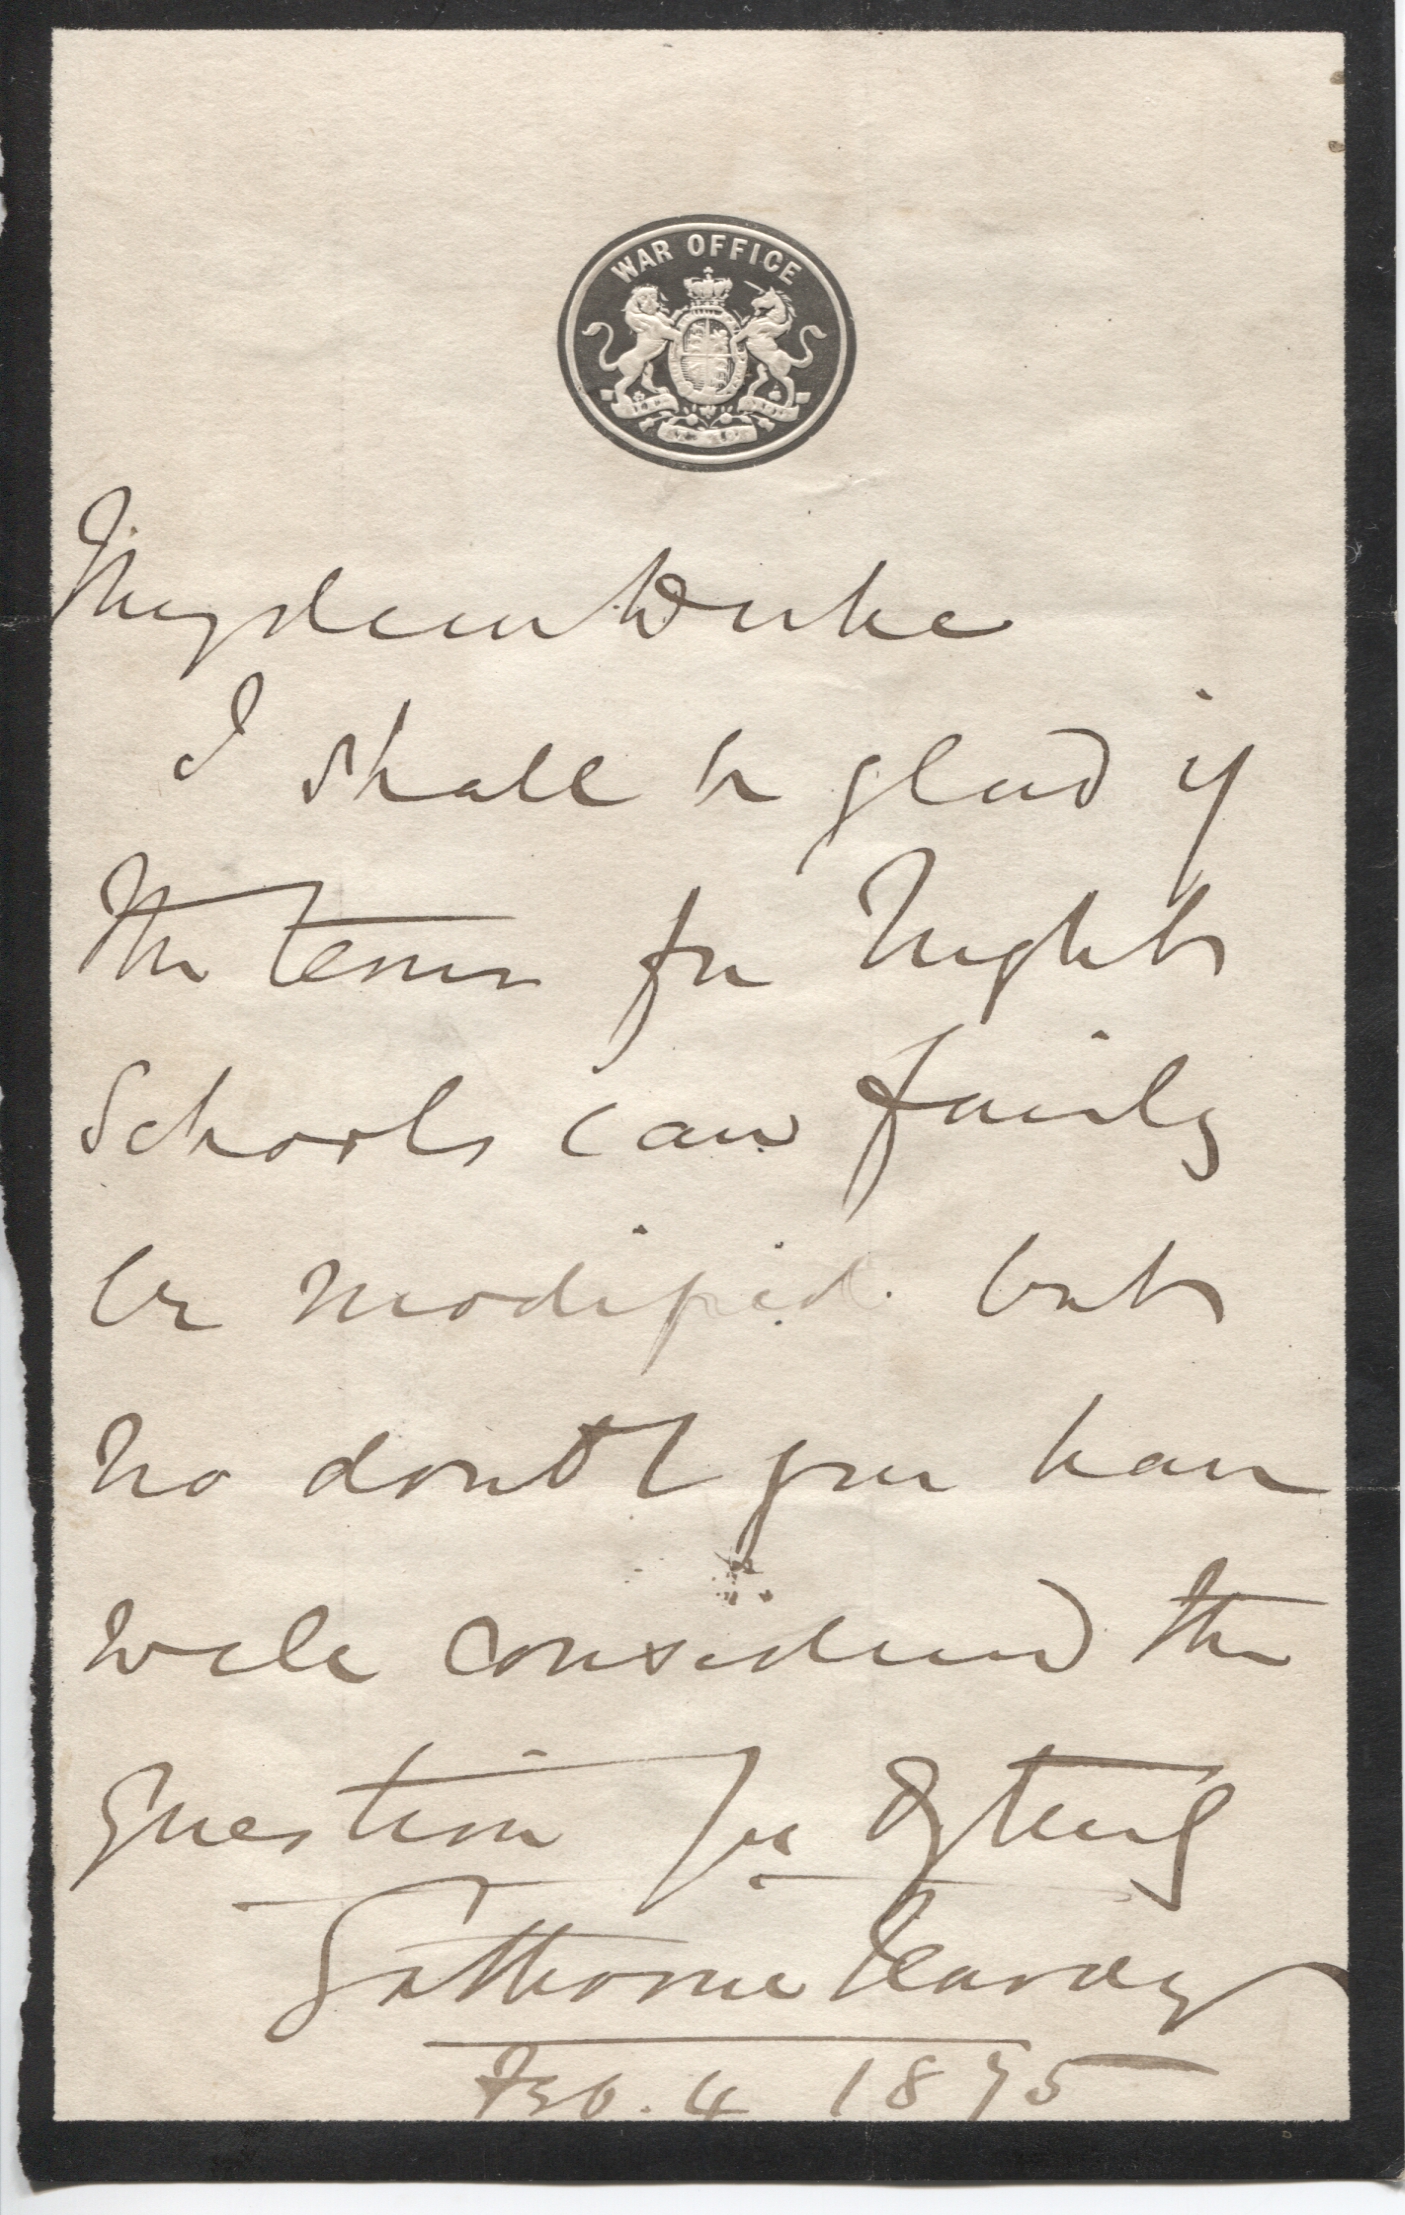 WAR OFFICE
My dear Duke
I shall be glad if
the terms for Night
Schools can fairly
be modified. but
no doubt you have
well considered the
question
Gathorne Hardy
Feb. 4 1875